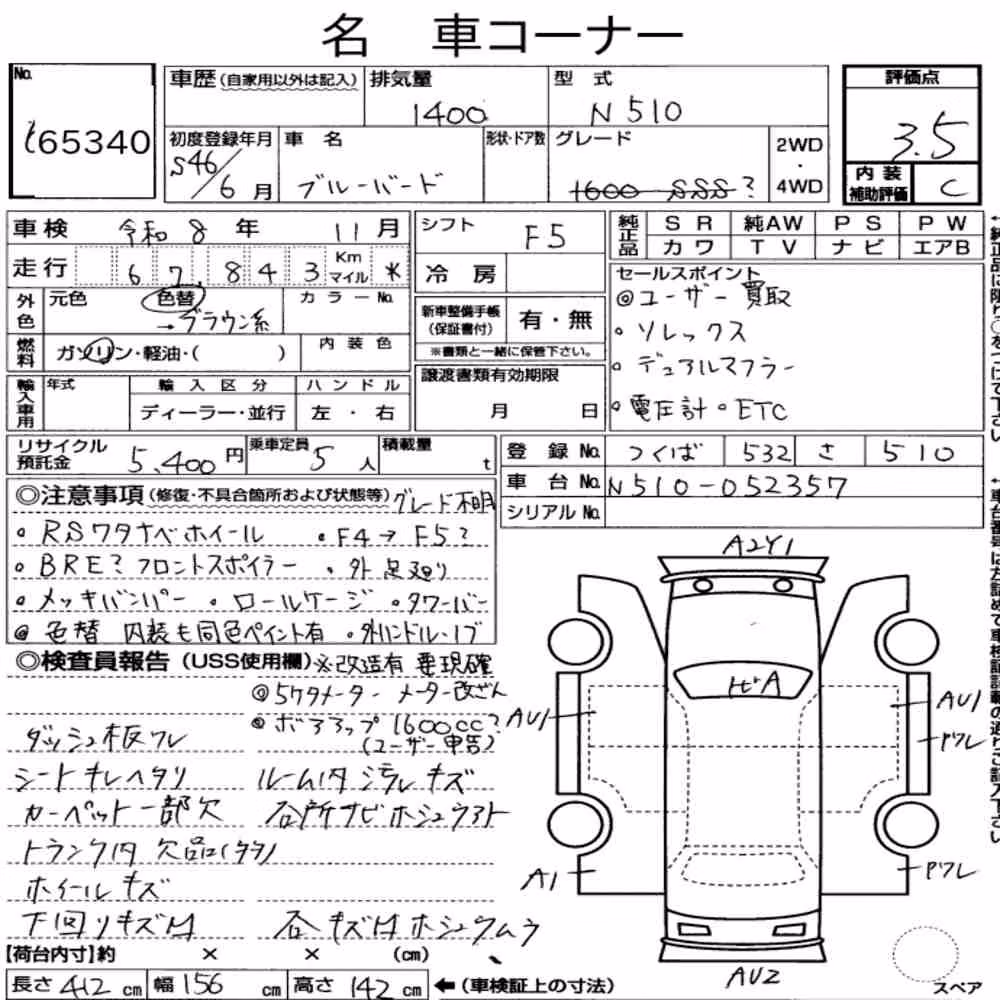 名 車コーナー
No. 65340
車歴 (自家用以外は記入) 排気量 1400 型式 N510 評価点 3.5
初度登録年月 S46/6月 車名 ブルーバード 形状・ドア数 グレード 1600 SSS? 2WD・4WD 内装補助評価 C
車検 令和 8 年 11 月 シフト F5 純正品 SR 純AW PS PW
カワ TV ナビ エアB
走行 6 7, 8 4 3 Km マイル * 冷房
セールスポイント
◎ユーザー買取
・ソレックス
・デュアルマフラー
・電圧計 ・ETC
外色 元色 色替 →ブラウン系 カラーNo.
新車整備手帳(保証書付) 有・無
※書類と一緒に保管下さい。
燃料 ガソリン・軽油・( ) 内装色
譲渡書類有効期限 月 日
輸入車用 年式 輸入区分 ハンドル
ディーラー・並行 左・右
リサイクル預託金 5,400 円 乗車定員 5 人 積載量 t
登録No. つくば 532 さ 510
車台No. N510-052357
シリアルNo.
◎注意事項 (修復・不具合箇所および状態等) グレード不明
・RSワタナベホイール ・F4→F5?
・BRE?フロントスポイラー ・外 足廻り
・メッキバンパー ・ロールケージ ・タワーバー
◎色替 内装も同色ペイント有 ・外ハンドル・1ブ
◎検査員報告 (USS使用欄) ※改造有 要現確
◎5ケタメーター メーター改ざん
◎ボアアップ 1600cc?
(ユーザー申告)
ダッシュ板ワレ
シートキレヘタリ ルーム内 汚レキズ
カーペット一部欠 各所サビホシュウアト
トランク内 欠品(多々)
ホイールキズ
下回りキズ凹 各キズ凹ホシュウムラ
A2Y1
ヒビA
AU1 AU1
ワレ
A1 ワレ
AU2
スペア
【荷台内寸】約 × × (cm)
長さ 412 cm 幅 156 cm 高さ 142 cm ←(車検証上の寸法)